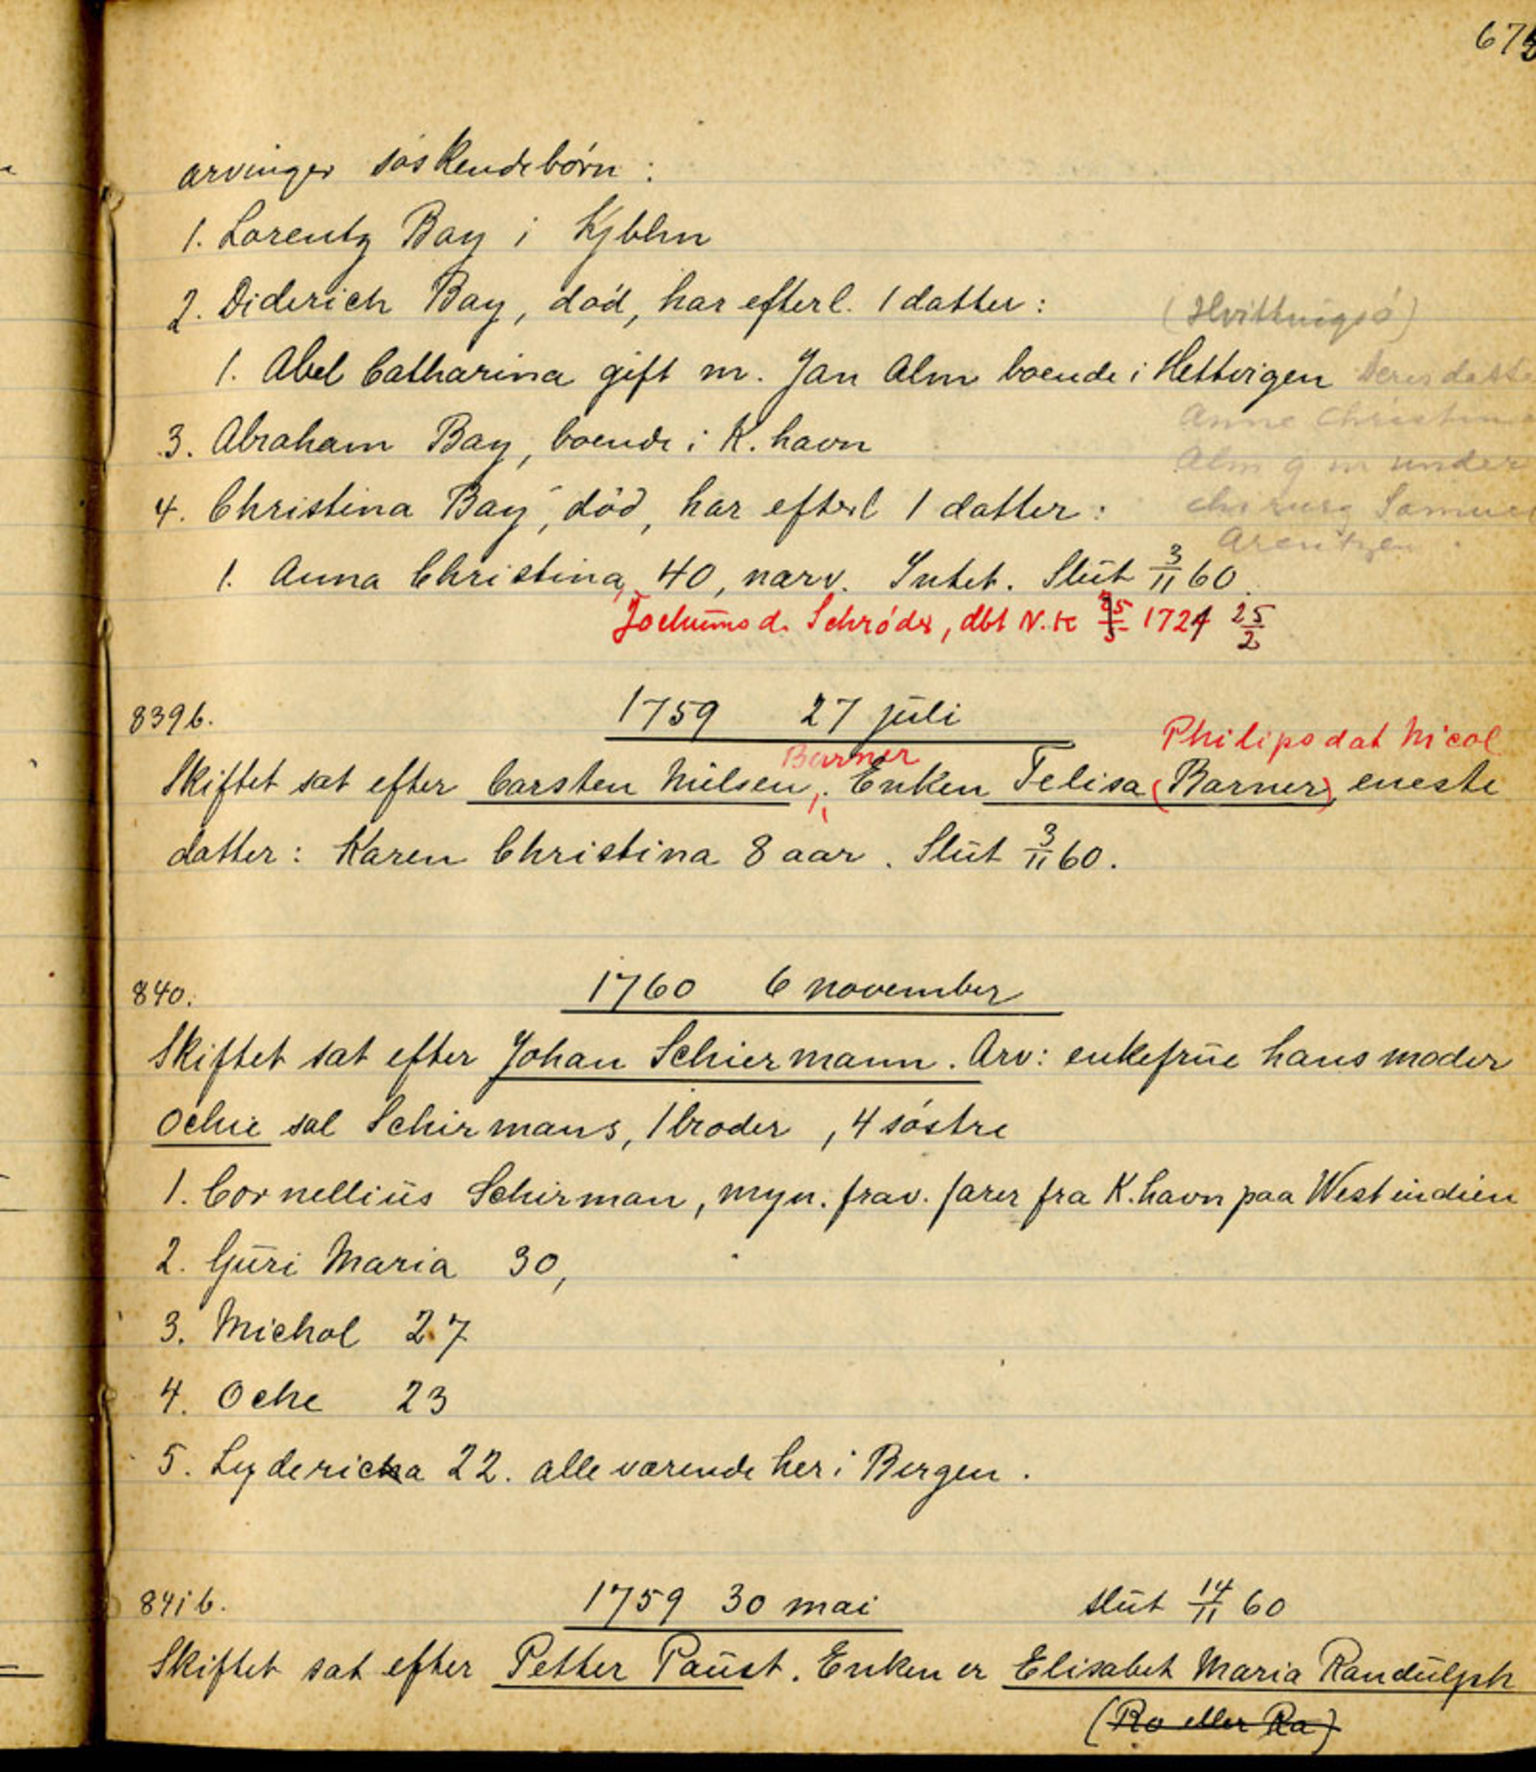 673
arvinger søskendebørn :
1. Lorentz Bay i Kjbhn
2. Diderich Bay, død, har efterl. 1 datter :
(Hvittingsø)
1. Abel Catharina gift m. Jan Alm boende i Hettvigen Deres datte
Anne Christin
3. Abraham Bay, boende i K.havn
Alm g m under
4. Christina Bay, død, har efterl 1 datter :
chirurg Samuel
Arentzen
1. Anna Christina, 40, nærv. Intet. Slut 3/11 60.
Jochumsd. Schrøder, dbt N.K 1724 25/2
839b. 1759 27 juli
Barner Philipsdat Nicol
Skiftet sat efter Carsten Nielsen, Enken Felisa (Barner) eneste
datter : Karen Christina 8 aar. Slut 3/11 60.
840. 1760 6 november
Skiftet sat efter Johan Schiermann. Arv: enkefrue hans moder
Ochie sal Schirmans, 1 broder , 4 søstre
1. Cornellius Schirman, myn. frav. farer fra K.havn paa Westindien
2. Guri Maria 30,
3. Michol 27
4. Oche 23
5. Lydericka 22. alle værende her i Bergen .
841b. 1759 30 mai slut 14/11 60
Skiftet sat efter Petter Paust. Enken er Elisabet Maria Randulph
(Ro eller Ra)